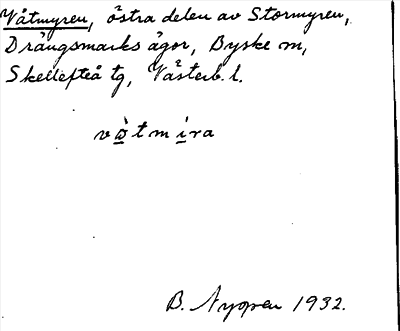 Våtmyren, östra delen av Stormyren,
Drängsmarks ägor, Byske sn,
Skellefteå tg, Västerb. l.
vò̱tmi̱ra
B. Nyberg 1932.